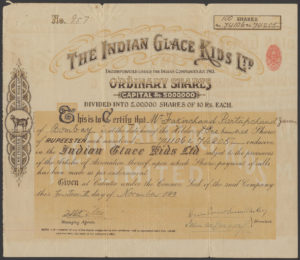 No. 857
100 SHARES
74106 to 74205
THE INDIAN GLACE KIDS LTD
INCORPORATED UNDER THE INDIAN COMPANIES ACT 1913.
ORDINARY SHARES
CAPITAL Rs 5000000
DIVIDED INTO 5,00,000 SHARES OF 10 RS. EACH.
This is to Certify that
of Bombay is the Holder of One hundred Shares
RUPEES TEN 74106 to 74205 inclusive
Indian Glace Kids Ltd subject to the provisions
of the Articles of Association thereof upon which Shares payment of calls
has been made as per endorsement
Given at Calcutta under the Common Seal of the said Company
this day of November 19
Managing Agents